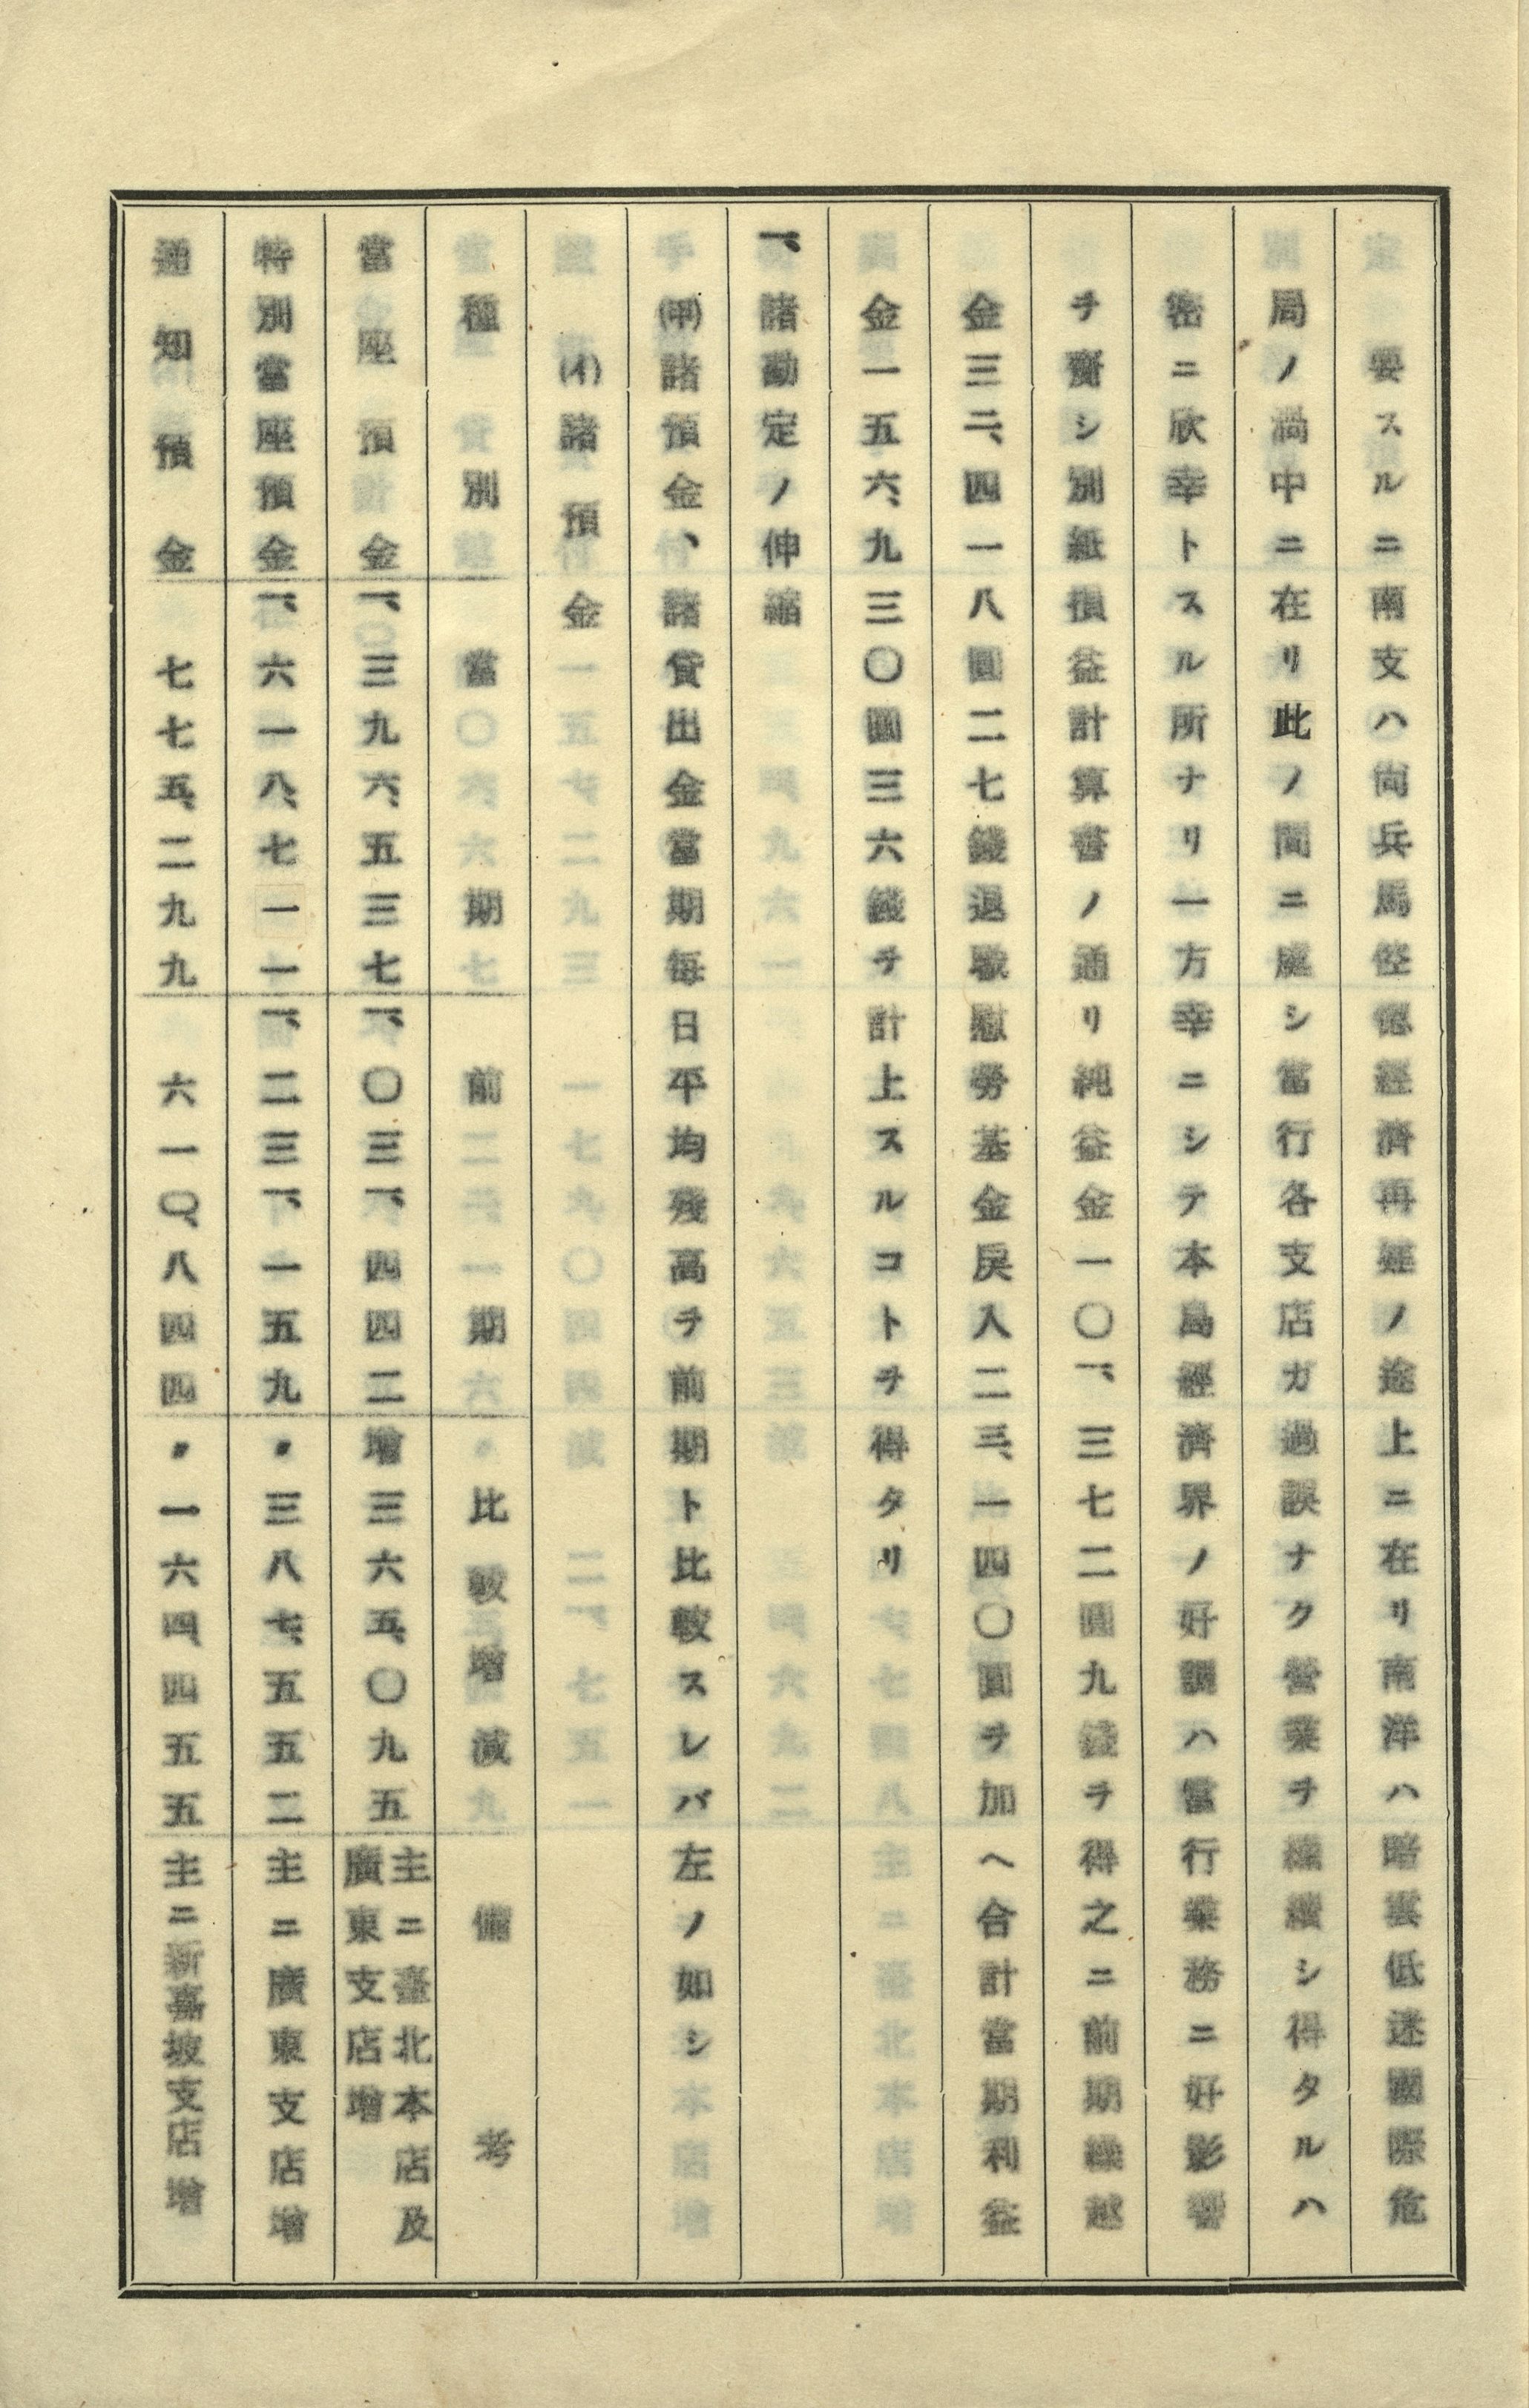 要スルニ南支ハ尚兵馬倥偬經濟再建ノ途上ニ在リ南洋ハ暗雲低迷國際危
局ノ渦中ニ在リ此ノ間ニ處シ當行各支店ガ過誤ナク營業ヲ繼續シ得タルハ
密ニ欣幸トスル所ナリ一方幸ニシテ本島經濟界ノ好調ハ當行業務ニ好影響
ヲ齎シ別紙損益計算書ノ通リ純益金一〇一、三七二圓九錢ヲ得之ニ前期繰越
金三二、四一八圓二七錢退職慰勞基金戾入二三、一四〇圓ヲ加ヘ合計當期利益
金一五六、九三〇圓三六錢ヲ計上スルコトヲ得タリ
一、諸勘定ノ伸縮
(甲)諸預金、諸貸出金當期每日平均殘高ヲ前期ト比較スレバ左ノ如シ
(イ)諸預金
種別 當期 前期 比較增減 備考
當座預金 一、三九六、五三七 一、〇三一、四四二 增三六五、〇九五 主ニ臺北本店及廣東支店增
特別當座預金 一、六一八、七一一 一、二三一、一五九 〃三八七、五五二 主ニ廣東支店增
通知預金 七七五、二九九 六一〇、八四四 〃一六四、四五五 主ニ新嘉坡支店增